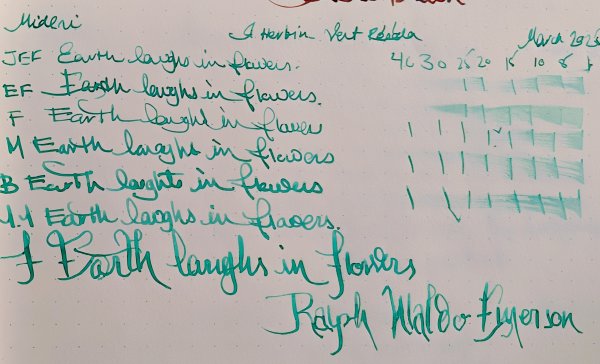 Midori
J Herbin Vert Réséda
March 2025
JEF Earth laughs in flowers.
40 30 25 20 15 10 5 1
EF Earth laughs in flowers.
F Earth laughs in flower
M Earth laughs in flowers
B Earth laughts in flowers
1.1 Earth laughs in flowers.
f Earth laughs in flowers
Ralph Waldo Emerson